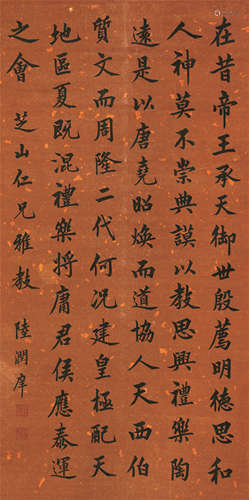 在昔帝王承天御世殷薦明德思和
人神莫不崇典謨以教思興禮樂陶
遠是以唐堯昭煥而道協人天西伯
質文而周隆二代何況建皇極配天
地區夏既混禮樂將庸君侯應泰運
之會 芝山仁兄雅教 陸潤庠